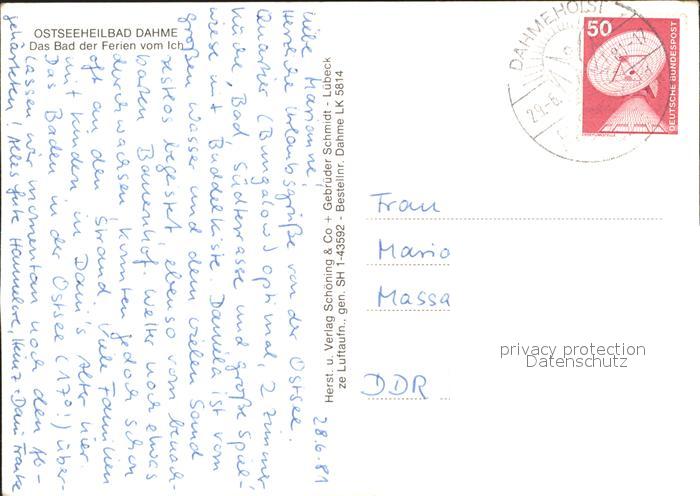 OSTSEEHEILBAD DAHME
Das Bad der Ferien vom Ich
28.6.81
Liebe Marianne!
Herzliche Urlaubsgrüße von der Ostsee.
Quartier (Bungalow) optimal, 2 Zimmer
Küche, Bad, Südterrasse und große Spiel-
wiese mit Buddelkiste. Daniela ist vom
großen Wasser und dem vielen Sand
restlos begeistert, ebenso vom benach-
barten Bauernhof. Wetter noch etwas
durchwachsen, konnten jedoch schon
oft an den Strand. Viele Familien
mit Kindern in Dani's Alter hier.
Das Baden in der Ostsee (17°!) über-
lassen wir momentan noch den Ab-
gehärteten! Alles Gute Hannelore, Heinz + Dani
Herst. u. Verlag Schöning & Co + Gebrüder Schmidt - Lübeck
ze Luftaufn., gen. SH 1-43592 - Bestellnr. Dahme LK 5814
DAHMEHOLST
29.-6.
50
DEUTSCHE BUNDESPOST
Frau
Mario
Massa
DDR
privacy protection
Datenschutz